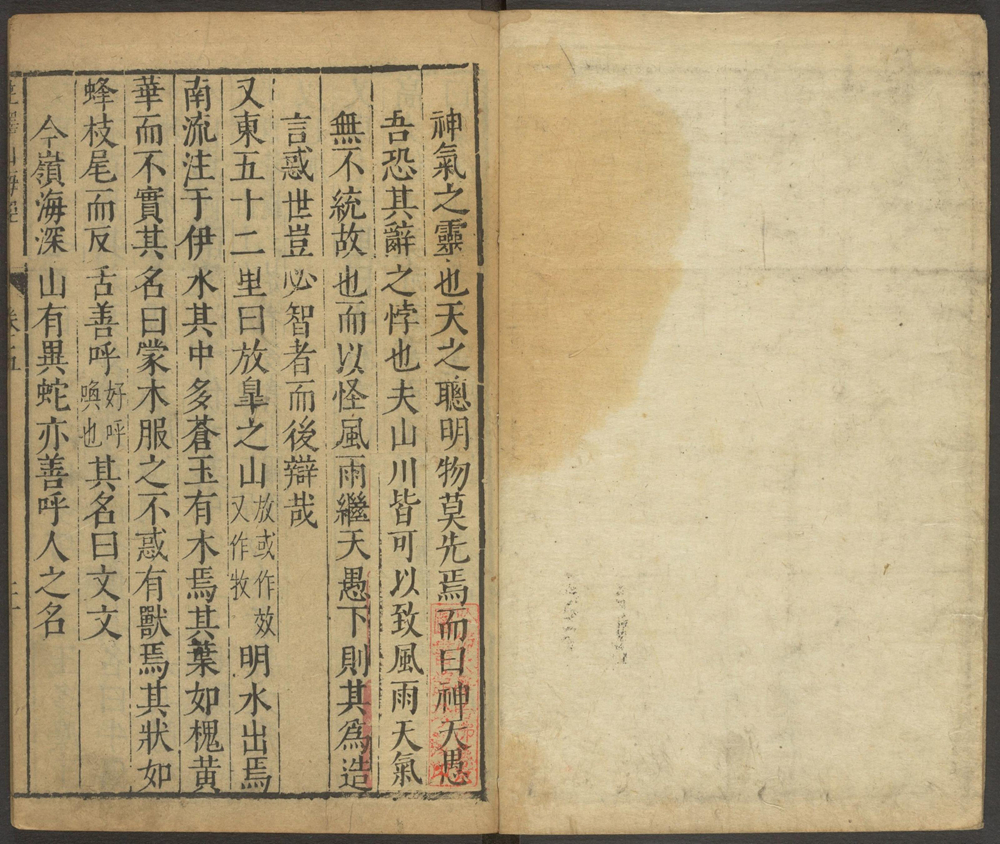 神氣之靈也天之聰明物莫先焉而曰神天愚
吾恐其辭之悖也夫山川皆可以致風雨天氣
無不統故也而以怪風雨繼天愚下則其為造
言惑世豈必智者而後辯哉
又東五十二里曰放臯之山放或作效又作牧明水出焉
南流注于伊水其中多蒼玉有木焉其葉如槐黃
華而不實其名曰蒙木服之不惑有獸焉其狀如
蜂枝尾而反舌善呼好呼喚也其名曰文文
今嶺海深山有異蛇亦善呼人之名